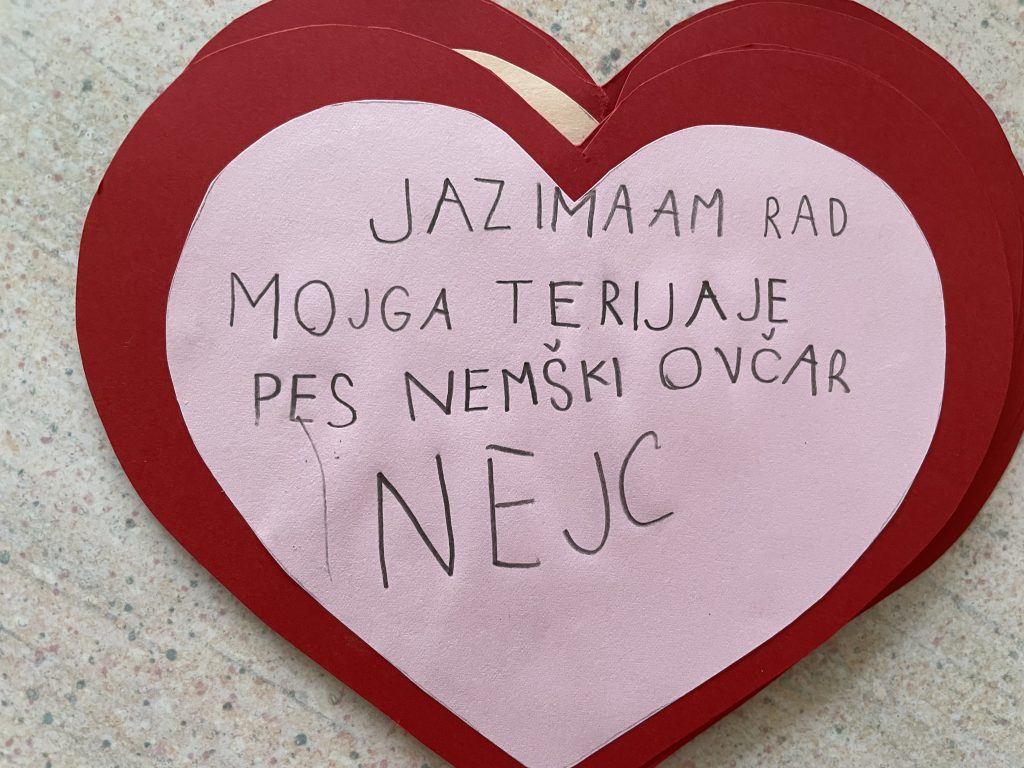 JAZ IMAAM RAD
MOJGA TERIJAJE
PES NEMŠKI OVČAR
NEJC